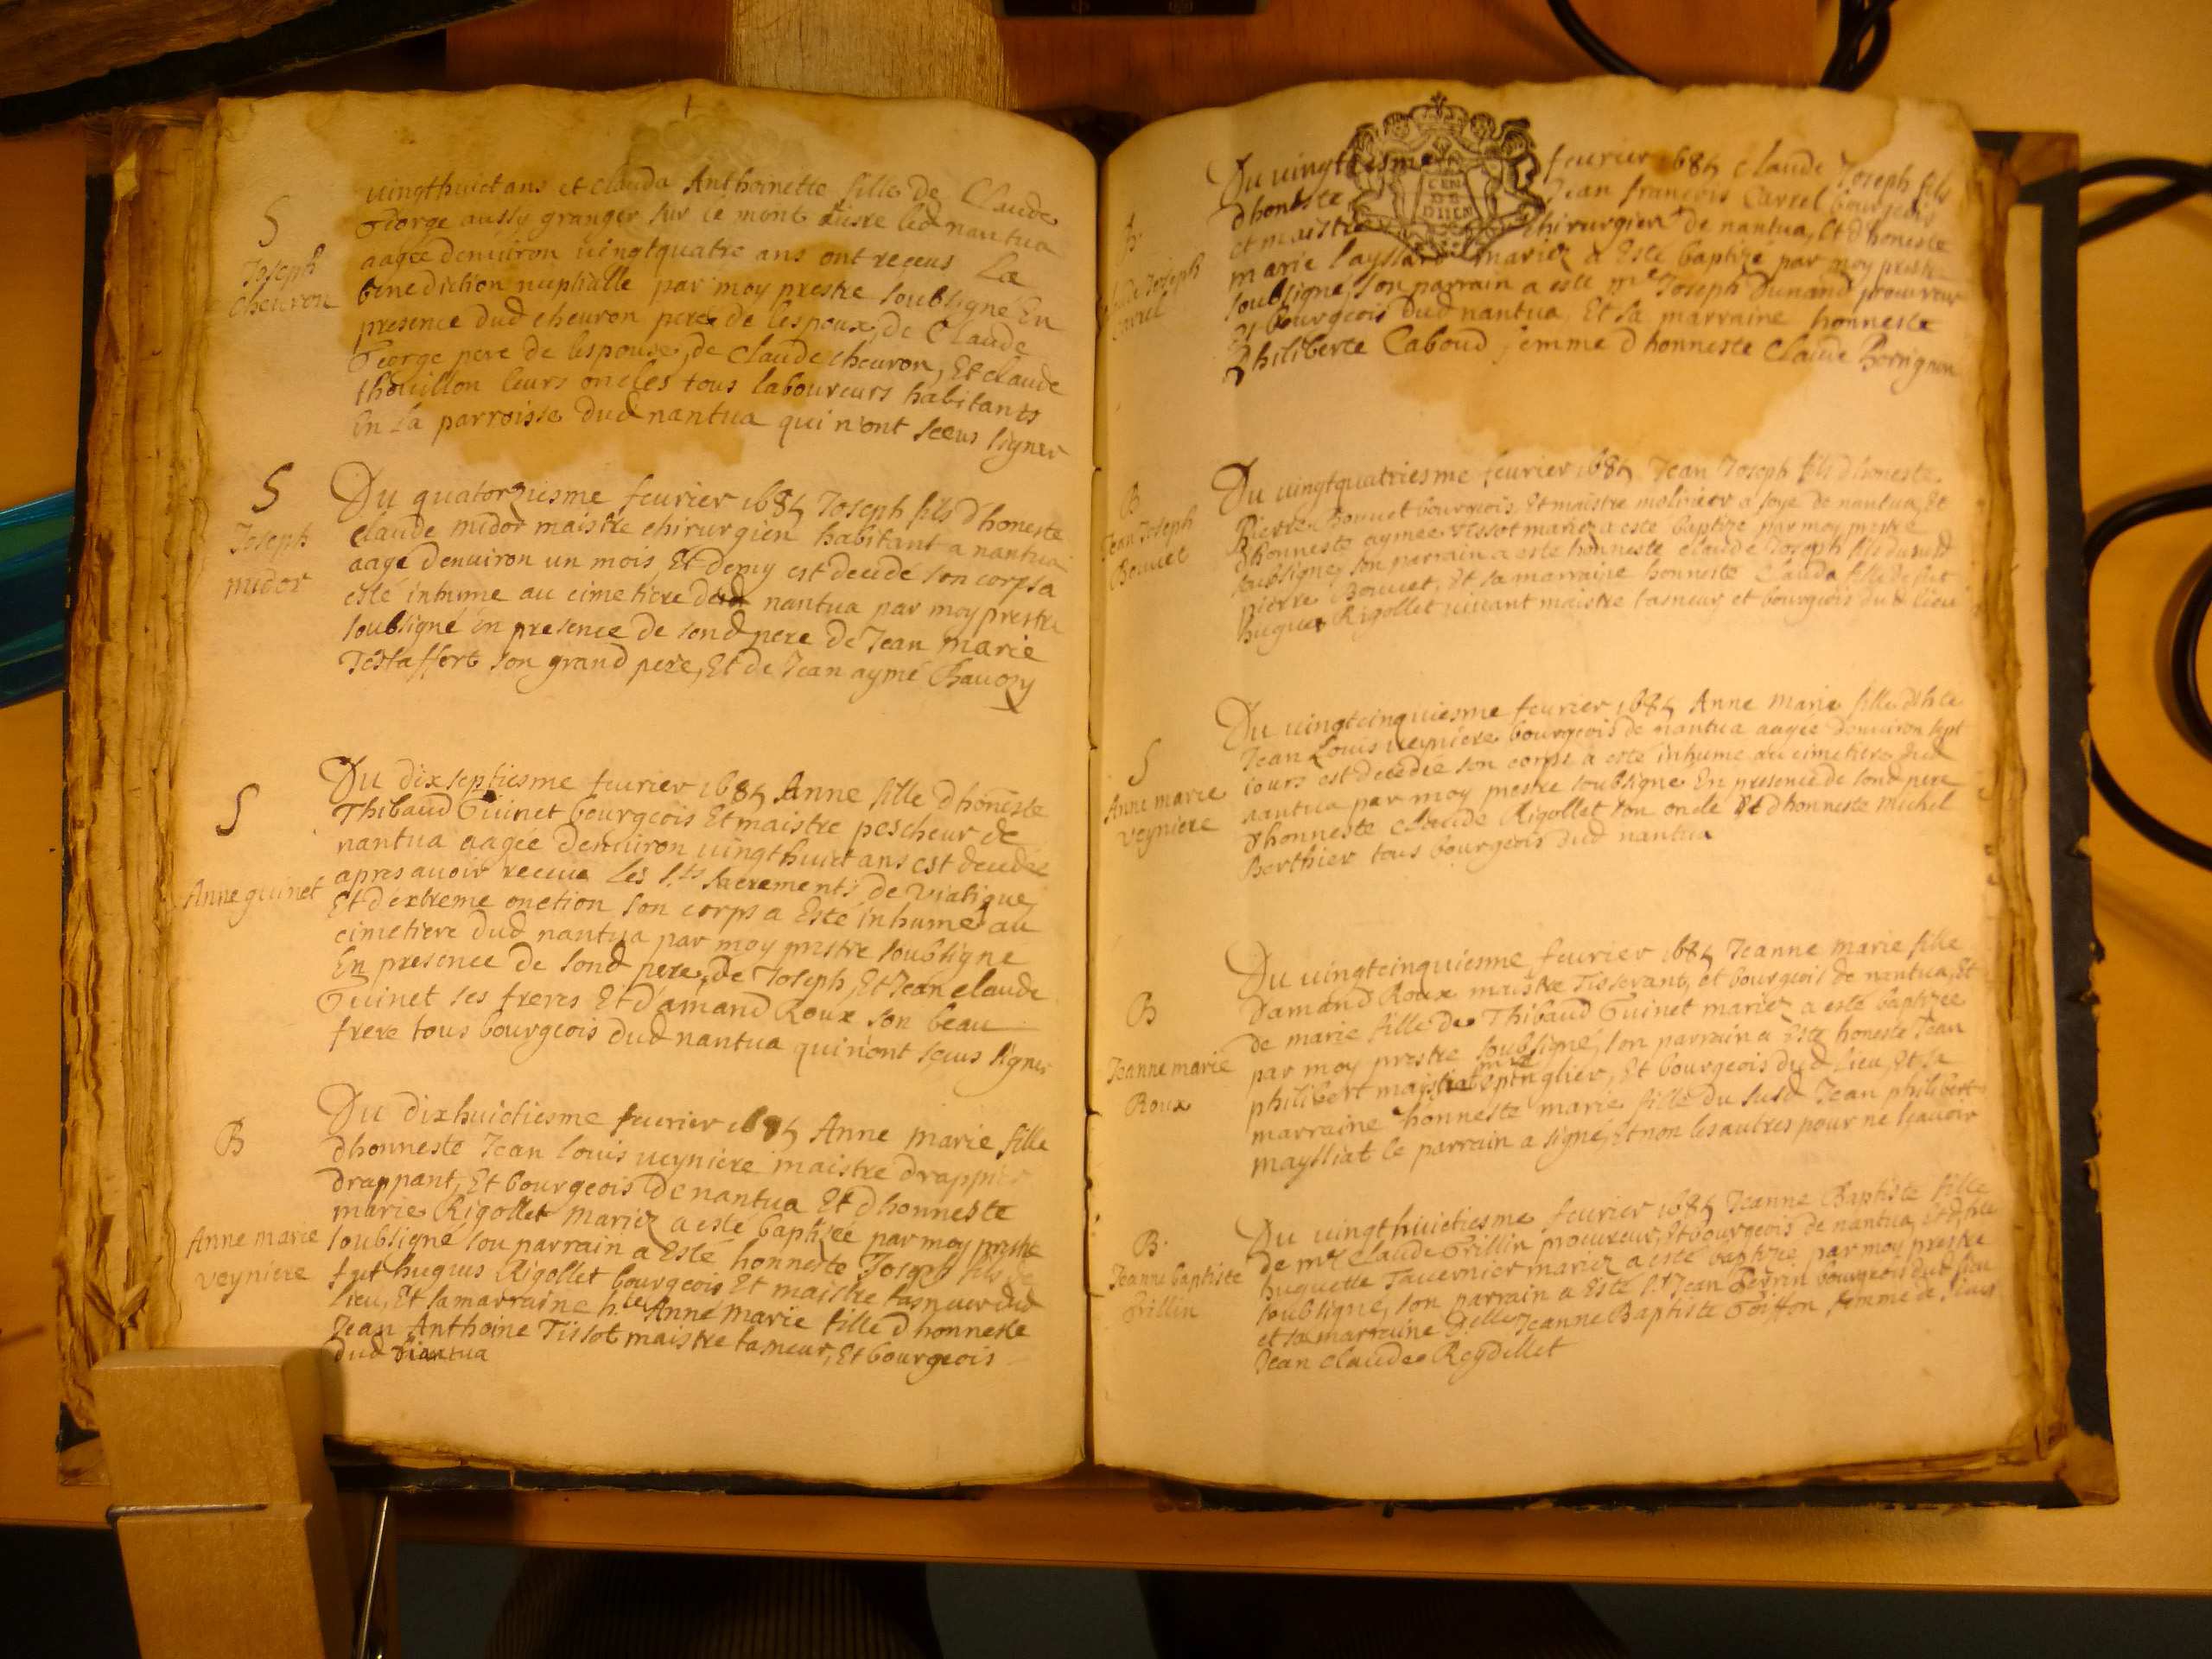 S
Joseph
Cheuron
uingthuict ans et Clauda Anthoinette fille de Claude
George aussy granger sur le mont dud nantua
aagée denuiron uingtquatre ans ont reçeus La
benediction nuptialle par moy prestre soubsigné En
presence dud cheuron pere de lespoux, de Claude
George pere de lespouse, de Claude cheuron, Et claude
thouillon leurs oncles tous laboureurs habitants
En La parroisse dud nantua qui n'ont sceus signer
S
Joseph
midor
Du quatorziesme feurier 1685 Joseph fils d'honeste
claude midor maistre chirurgien habitant a nantua
aage denuiron un mois Et demy est decedé son corps a
esté inhume au cimetiere dud nantua par moy prestre
soubsigné En presence de sond pere de Jean marie
Testaffort son grand pere, Et de Jean aymé Chauory
S
Anne guinet
Du dixseptiesme feurier 1685 Anne fille d'honeste
Thibaud Guinet bourgeois Et maistre pescheur de
nantua aagée denuiron uingthuict ans est decedée
apres auoir receue Les S.ts sacrements de Viatique
Et d'extreme onction son corps a Esté inhumé au
cimetiere dud nantua par moy prestre soubsigne
En presence de sond pere, de Joseph, Et Jean claude
Guinet ses freres Et d'amand Roux son beau
frere tous bourgeois dud nantua qui n'ont sçeus signer
B
Anne marie
Veyniere
Du dixhuictiesme feurier 1685 Anne marie fille
dhonneste Jean Louis ueyniere maistre drappier
drappant, Et bourgeois de nantua Et d'honneste
marie Rigollet mariez a esté baptizée par moy prestre
soubsigné son parrain a Esté honneste Joseph fils de
fut hugues Rigollet bourgeois Et maistre tasneur dud
Lieu, Et sa marraine h.te Anne marie fille d'honneste
Jean Anthoine Tissot maistre tasneur, Et bourgeois
dud nantua
B
Claude Joseph
Carrel
Du uingtiesme feurier 1685 Claude Joseph fils
dhoneste Jean francois Carrel bourgeois
et maistre chirurgien de nantua, Et d'honeste
marie mariez a Esté baptizé par moy prestre
soubsigné, son parrain a esté m.e Joseph Dunand procureur
Et bourgeois dud nantua, Et sa marraine honneste
Philiberte Caboud femme d'honneste Claude
B
Jean Joseph
Bouuet
Du uingtquatriesme feurier 1685 Jean Joseph fils d'honeste
Pierre Bouuet bourgeois, Et maistre molinier a soye de nantua, Et
d'honneste aymee Tissot mariez a esté baptizé par moy prestre
soubsigné, son parrain a esté honneste claude Joseph fils dusud
pierre Bouuet, Et sa marraine honneste Clauda fille de fut
hugues Rigollet uiuant maistre tasneur et bourgeois dud lieu
S
Anne marie
veyniere
Du uingtcinquiesme feurier 1685 Anne marie fille d'h.te
Jean Louis ueyniere bourgeois de nantua aagée denuiron sept
iours est decedée son corps a esté inhume au cimetiere dud
nantua par moy prestre soubsigne En presence de sond pere
d'honneste Claude Rigollet son oncle Et d'honneste michel
Berthier tous bourgeois dud nantua
B
Jeanne marie
Roux
Du uingtcinquiesme feurier 1685 Jeanne marie fille
D'amand Roux maistre Tisserant, et bourgeois de nantua, Et
de marie fille de Thibaud Guinet mariez a esté baptizée
par moy prestre soubsigné, son parrain a Esté honeste Jean
philibert m.tre espinglier, Et bourgeois dud Lieu, Et sa
marraine honneste marie fille du susd Jean philibert
maysliat le parrain a signé, Et non les autres pour ne sçauoir
B
Jeanne baptiste
Grillin
Du uingthuictiesme feurier 1685 Jeanne Baptiste fille
de m.re Claude Grillin procureur, Et bourgeois de nantua, et d'h.te
huguette Tauernier mariez a esté baptizée par moy prestre
soubsigné, son parrain a Esté S.r Jean Perrin bourgeois dud lieu
et sa marraine D.elle Jeanne Baptiste Goiffon femme de sieur
Jean Claude Reydellet